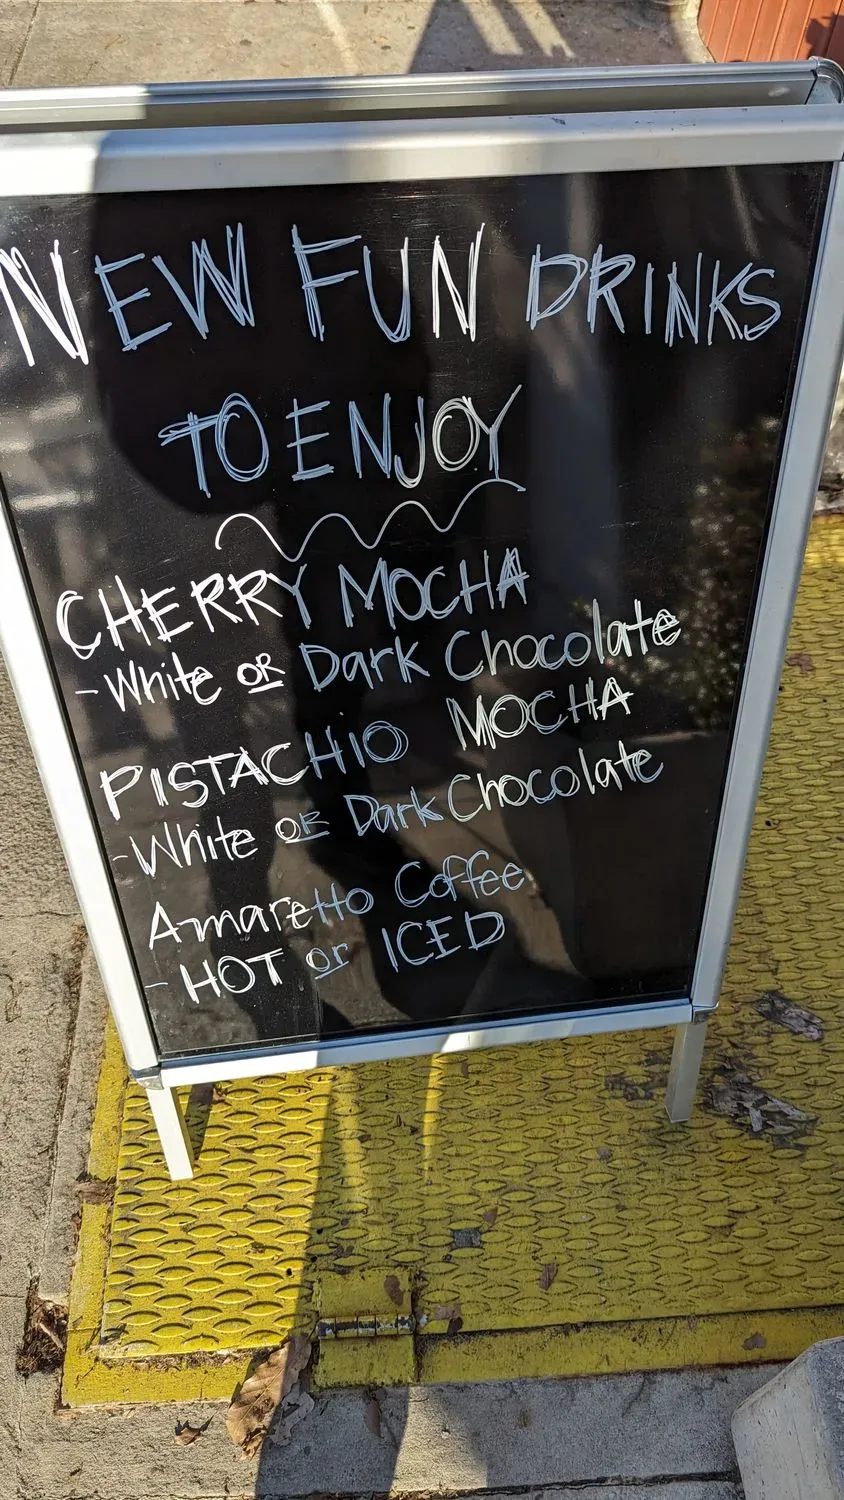 NEW FUN DRINKS
TO ENJOY
CHERRY MOCHA
- White OR Dark Chocolate
PISTACHIO MOCHA
- White OR Dark Chocolate
Amaretto Coffee
- HOT or ICED